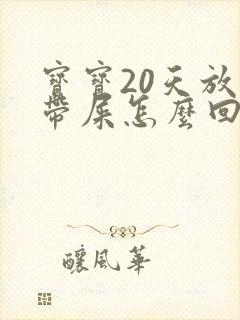 寶寶20天放
帶屎怎麼回
釀風華